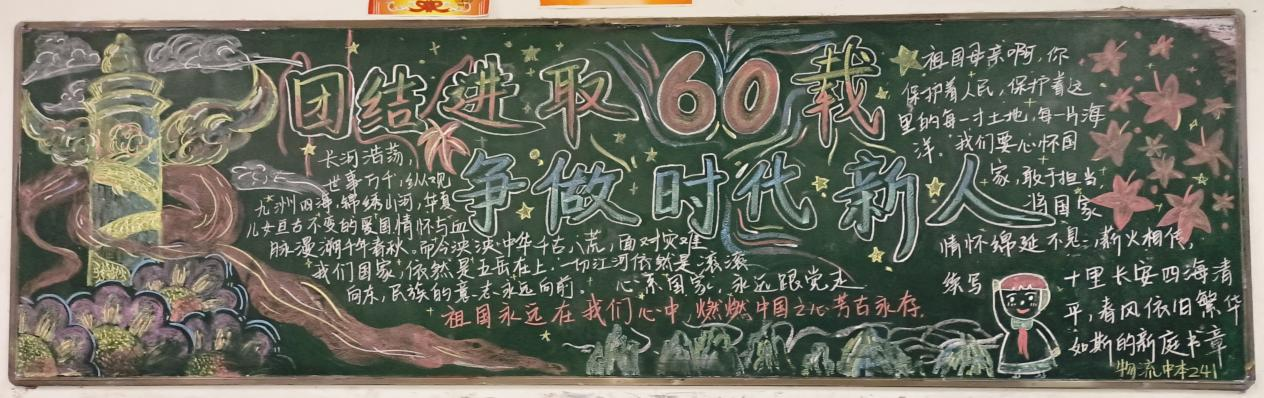 团结进取60载
争做时代新人
长河浩荡，
世事万千，纵观
九州四海，锦绣山河，华夏
儿女亘古不变的爱国情怀与血
脉漫溯千年春秋。而今泱泱中华千古八荒，面对灾难
我们国家，依然是五岳在上，一切江河依然是滚滚
向东，民族的意志永远向前。心系国家，永远跟党走
祖国永远在我们心中，燃燃中国之心芳古永存。
祖国母亲啊，你
保护着人民，保护着这
里的每一寸土地，每一片海
洋。我们要心怀国
家，敢于担当，
将国家
情怀绵延不息，薪火相传，
续写
十里长安四海清
平，春风依旧繁华
如斯的新庭书章
物流中本241